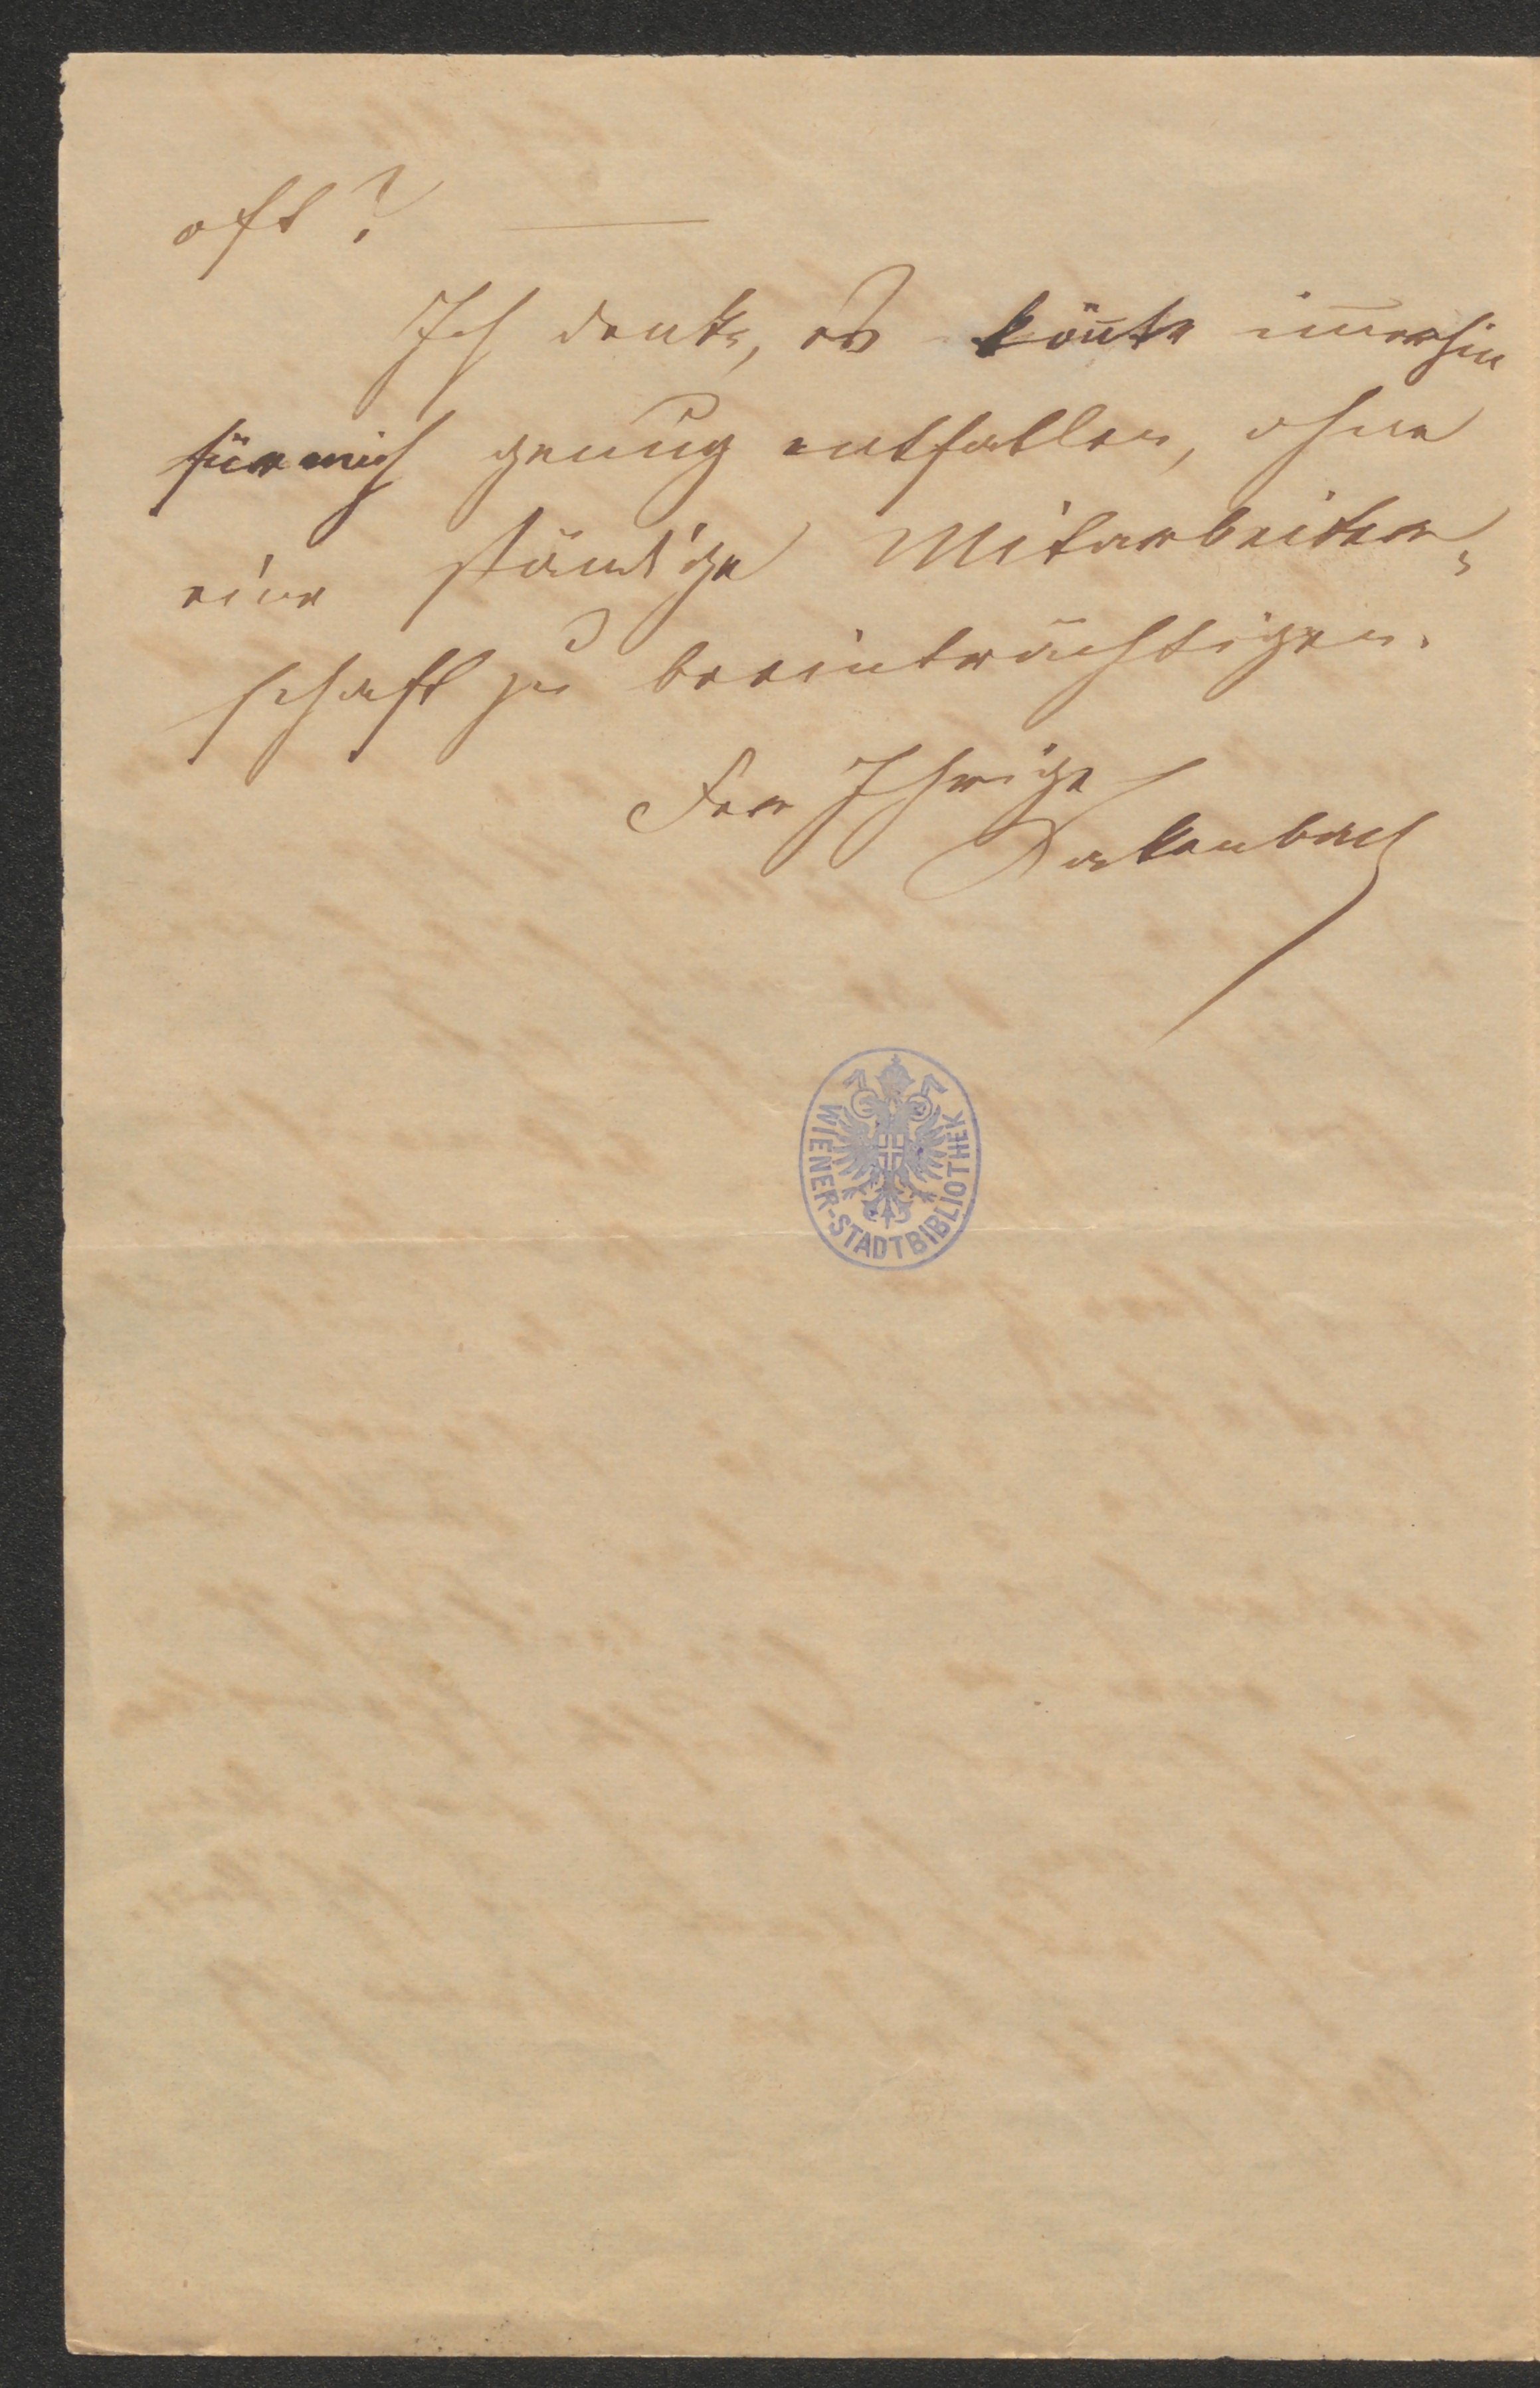 oft? —
Ich denke, es kön̄te im̄erhin
für mich genug entfallen, ohne
eine ständige Mitarbeiter-
schaft zu beeinträchtigen.
Der Ihrige
WIENER-STADTBIBLIOTHEK